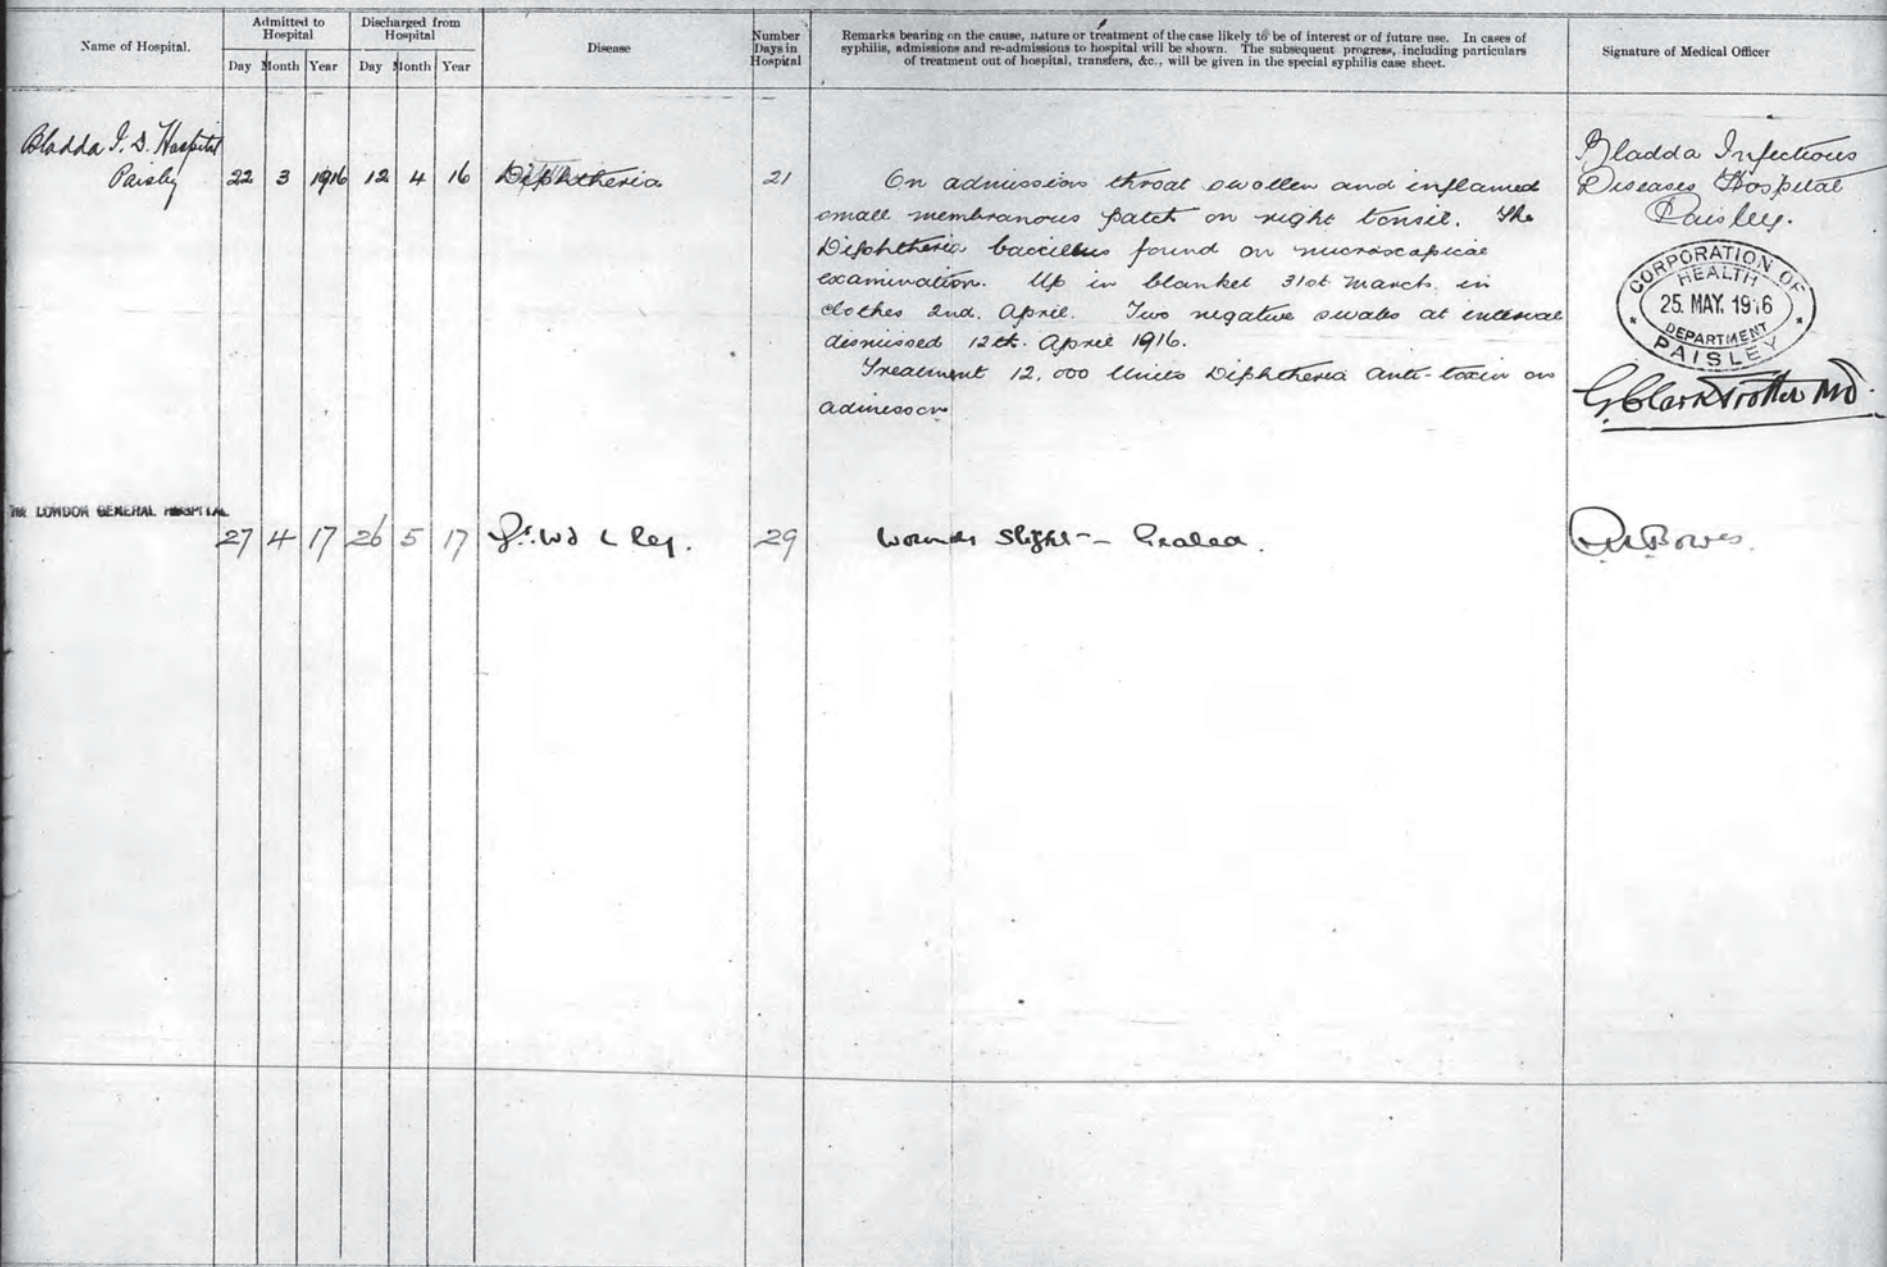 Name of Hospital.
Admitted to Hospital
Day Month Year
Discharged from Hospital
Day Month Year
Disease
Number Days in Hospital
Remarks bearing on the cause, nature or treatment of the case likely to be of interest or of future use. In cases of
syphilis, admissions and re-admissions to hospital will be shown. The subsequent progress, including particulars
of treatment out of hospital, transfers, &c., will be given in the special syphilis case sheet.
Signature of Medical Officer
Bladda I. D. Hospital
Paisley 22 3 1916 12 4 16 Diphtheria 21
On admission throat swollen and inflamed
small membranous patch on right tonsil. The
Diphtheria baccillus found on microscopical
examination. Up in blanket 31st March. in
clothes 2nd. April. Two negative swabs at interval
dismissed 12th. April 1916.
Treatment 12,000 Units Diphtheria Anti-toxin on
admission
Bladda Infectious
Diseases Hospital
Paisley.
CORPORATION OF
HEALTH
25. MAY. 1916
DEPARTMENT
PAISLEY
G Clark Trotter MD.
LONDON GENERAL HOSPITAL
27 4 17 26 5 17 Wd L leg. 29 Wounds slight - healed.
Bowes.